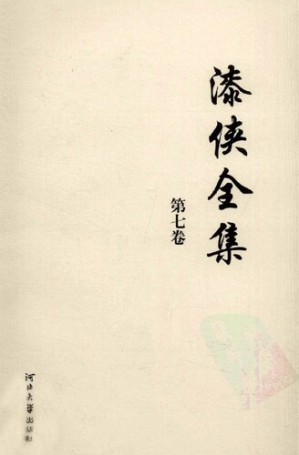 漆侠全集
第七卷
河北大学出版社